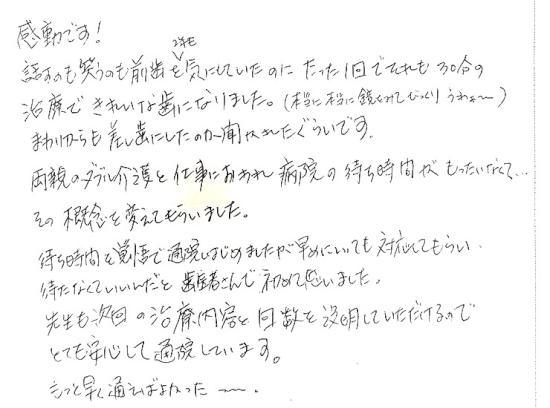 感動です！
話すのも笑うのも前歯を2年も気にしていたのに たった1回でそれも30分の
治療で きれいな歯になりました。(本当に本当に鏡をみてびっくり うわぁ〜)
まわりからも差し歯にしたのか聞かれたぐらいです。
両親のダブル介護と仕事におわれ 病院の待ち時間がもったいなくて…
その概念を変えてもらいました。
待ち時間を覚悟で通院はじめましたが早めにいっても対応してもらい、
待たなくていいんだと 歯医者さんで初めて思いました。
先生も次回の治療内容と回数を説明していただけるので
とても安心して通院しています。
もっと早く通えばよかった〜。